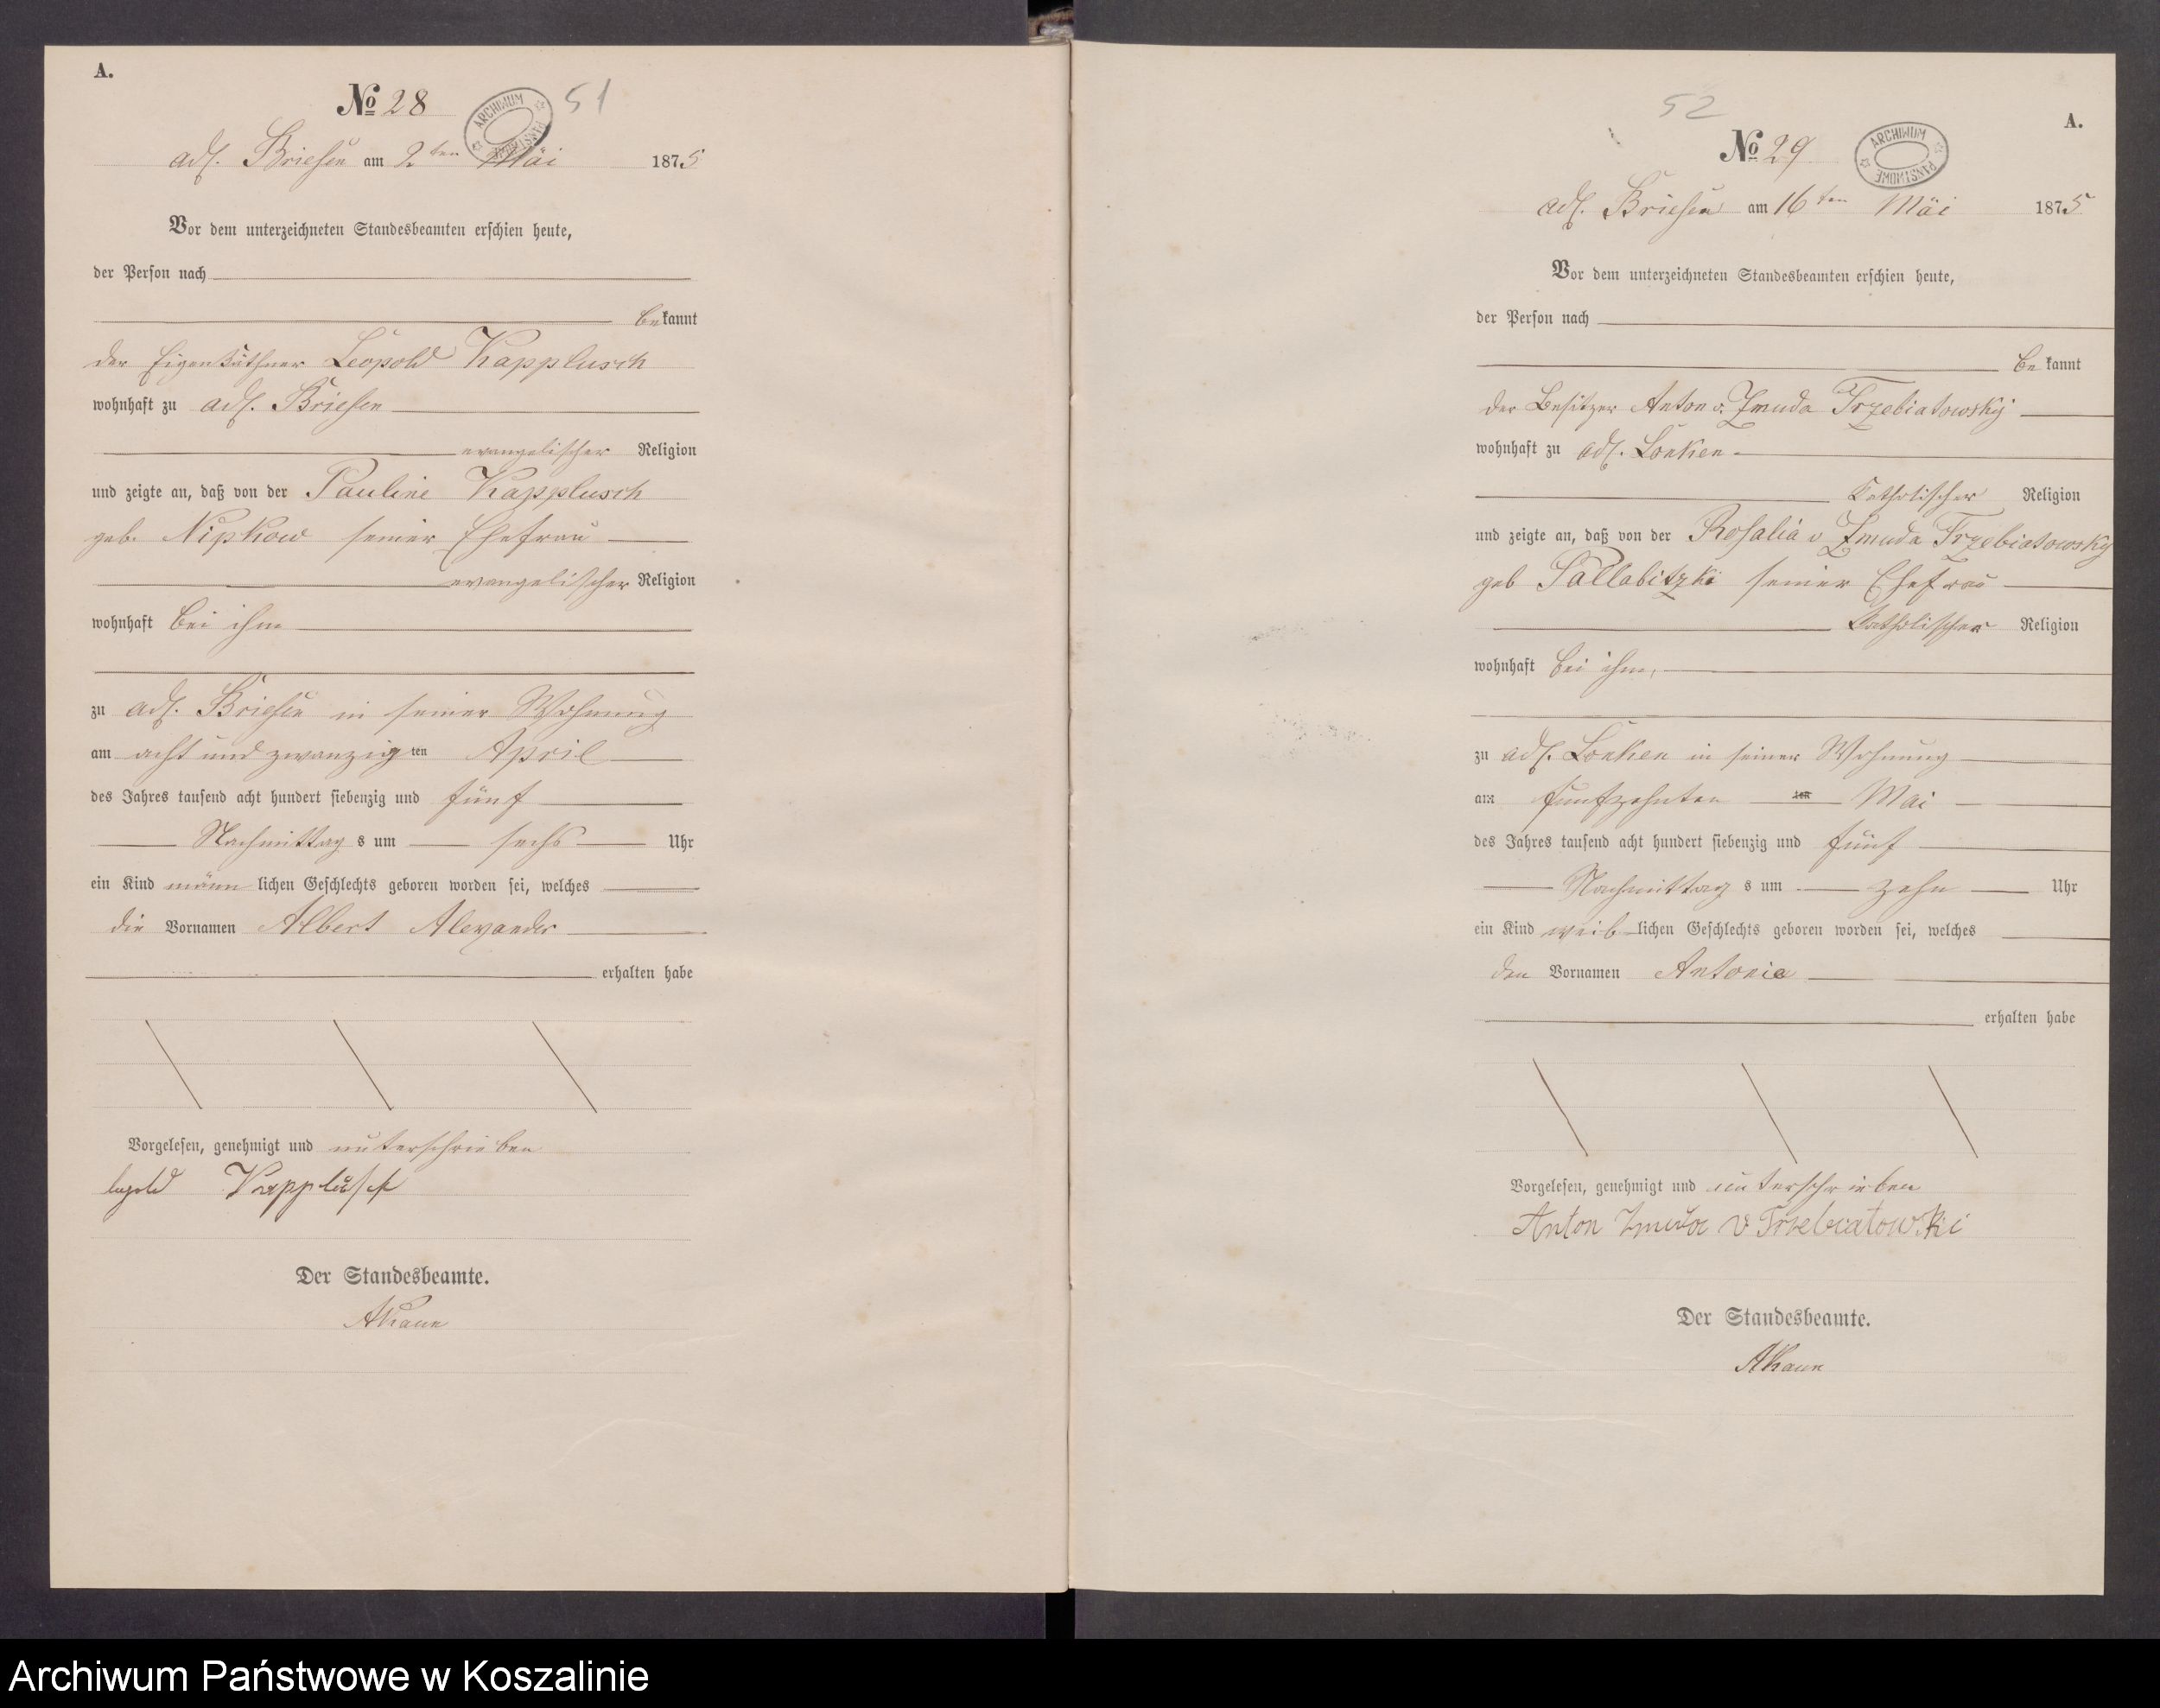 A.
No 28
51
ARCHIWUM PAŃSTWOWE
adl. Briesen am 2ten Mai 1875
Vor dem unterzeichneten Standesbeamten erschien heute,
der Person nach
bekannt
der Eigenkäthner Leopold Kapplusch
wohnhaft zu adl. Briesen
evangelischer Religion
und zeigte an, daß von der Pauline Kapplusch
geb. Nipkow seiner Ehefrau
evangelischer Religion
wohnhaft bei ihm
zu adl. Briesen in seiner Wohnung
am acht und zwanzigten April
des Jahres tausend acht hundert siebenzig und fünf
Nachmittags um sechs Uhr
ein Kind männlichen Geschlechts geboren worden sei, welches
die Vornamen Albert Alexander
erhalten habe
Vorgelesen, genehmigt und unterschrieben
Kapplusch
Der Standesbeamte.
52
A.
No 29
ARCHIWUM PAŃSTWOWE
adl. Briesen am 16ten Mai 1875
Vor dem unterzeichneten Standesbeamten erschien heute,
der Person nach
bekannt
der Besitzer Anton v. Zmuda Trzebiatowsky
wohnhaft zu adl. Lonken
katholischer Religion
und zeigte an, daß von der Rosalia v Zmuda Trzebiatowsky
geb Pallabitzki seiner Ehefrau
katholischer Religion
wohnhaft bei ihm,
zu adl. Lonken in seiner Wohnung
am fünfzehnten ten Mai
des Jahres tausend acht hundert siebenzig und fünf
Nachmittags um zehn Uhr
ein Kind weiblichen Geschlechts geboren worden sei, welches
den Vornamen Antonie
erhalten habe
Vorgelesen, genehmigt und unterschrieben
Anton Zmuda v Trzebiatowski
Der Standesbeamte.
Archiwum Państwowe w Koszalinie